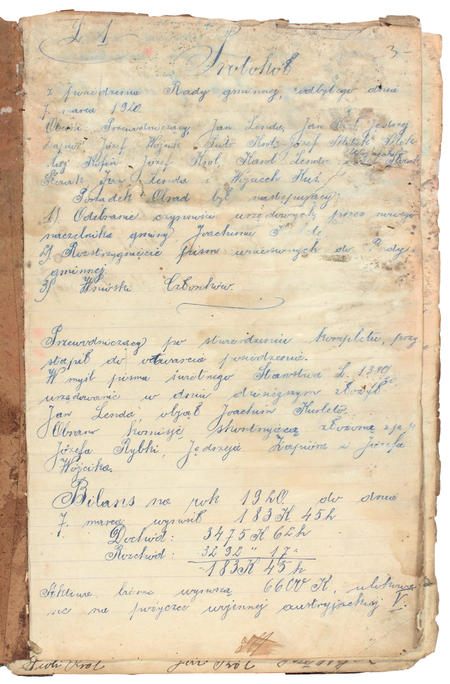 L 1
3
Protokół
z posiedzenia Rady gminnej, odbytego dnia
7 marca 1920.
Obecni Przewodniczący Jan Lenda, Jan Jędrzej
Józef Wójcik Piotr Józef
Józef Król, Karol Lenda
Jan Lenda i Wojciech Kuś
Porządek Obrad był następujący:
1) Odebranie czynności urzędowych przez nowego
naczelnika gminy Joachima
2) Rozstrzygnięcie pism wniesionych do Rady
gminnej
3) Wnioski Członków.
Przewodniczący po stwierdzeniu kompletu, przy
stąpił do otwarcia posiedzenia.
W myśl pisma Starostwa L. 1390
urzędowanie w dniu dzisiejszym złożył
Jan Lenda, objął Joachim
Obrano komisję skontrującą złożoną z p.p.
Józefa Rybki Jędrzeja i Józefa
Wójcika.
Bilans na rok 1920. do dnia
7. marca wynosił 183 K 45 h
Dochód: 3475 K 62 h
Rozchód: 3292 " 17 "
183 K 45 h
wynoszą 6600 K,
na na pożyczce wojennej austryjackiej V.
Piotr Król Jan Król